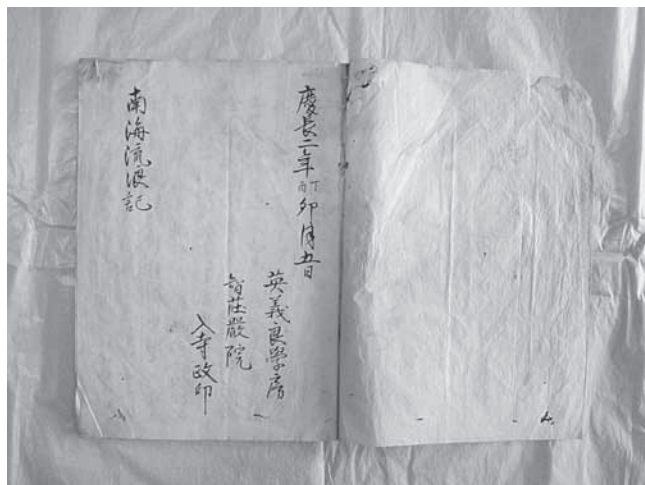 慶長二年丁酉卯月五日
英義良學房
智荘嚴院
入寺政印
南海流浪記